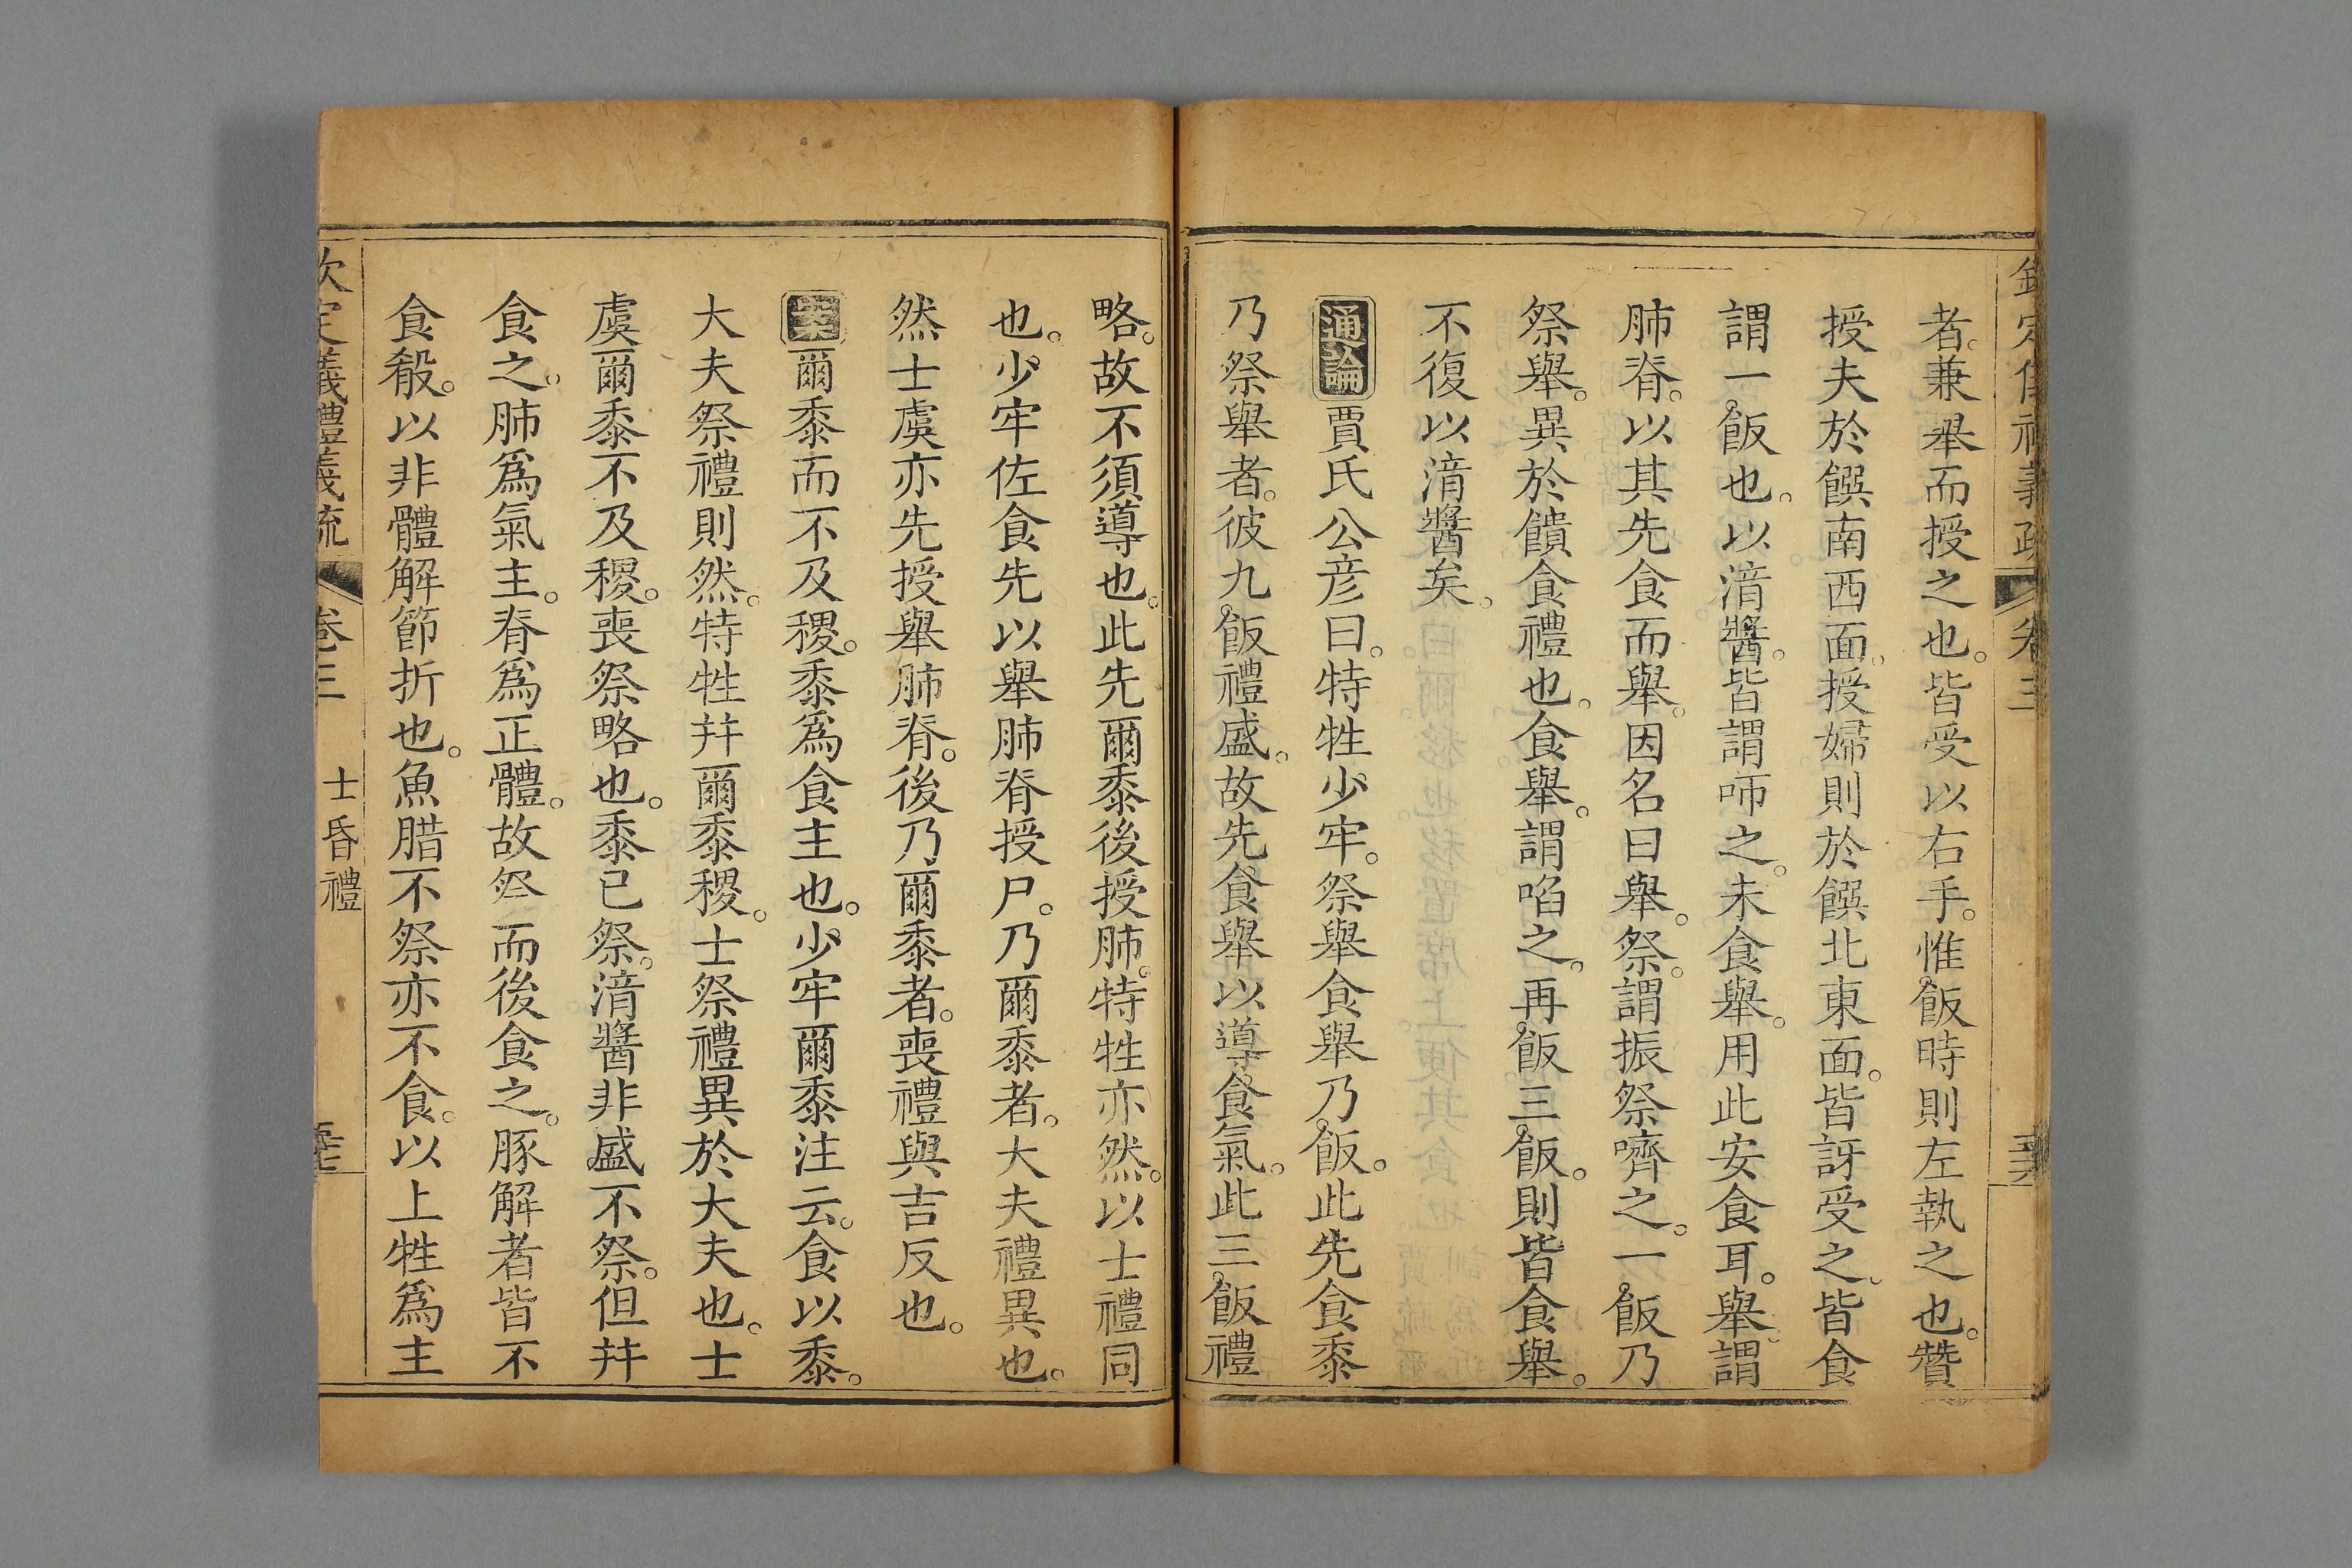 者。兼舉而授之也。皆受以右手。惟飯時則左執之也。贊
授夫於饌南西面。授婦則於饌北東面。皆訝受之。皆食
謂一飯也。以湆醬。皆謂咂之。未食舉。用此安食耳。舉謂
肺脊。以其先食而舉。因名曰舉。祭。謂振祭嚌之。一飯乃
祭舉。異於饋食禮也。食舉。謂啗之。再飯三飯。則皆食舉。
不復以湆醬矣。
通論賈氏公彦曰。特牲少牢。祭舉食舉乃飯。此先食黍
乃祭舉者。彼九飯禮盛。故先食舉以導食氣。此三飯禮
略。故不須導也。此先爾黍後授肺。特牲亦然。以士禮同
也。少牢佐食先以舉肺脊授尸。乃爾黍者。大夫禮異也。
然士虞亦先授舉肺脊。後乃爾黍者。喪禮與吉反也。
案爾黍而不及稷。黍爲食主也。少牢爾黍注云。食以黍。
大夫祭禮則然。特牲幷爾黍稷。士祭禮異於大夫也。士
虞爾黍不及稷。喪祭略也。黍已祭。湆醬非盛不祭。但幷
食之。肺爲氣主。脊爲正體。故祭而後食之。豚解者皆不
食殽。以非體解節折也。魚腊不祭亦不食。以上牲爲主
欽定儀禮義疏 卷三 士昏禮